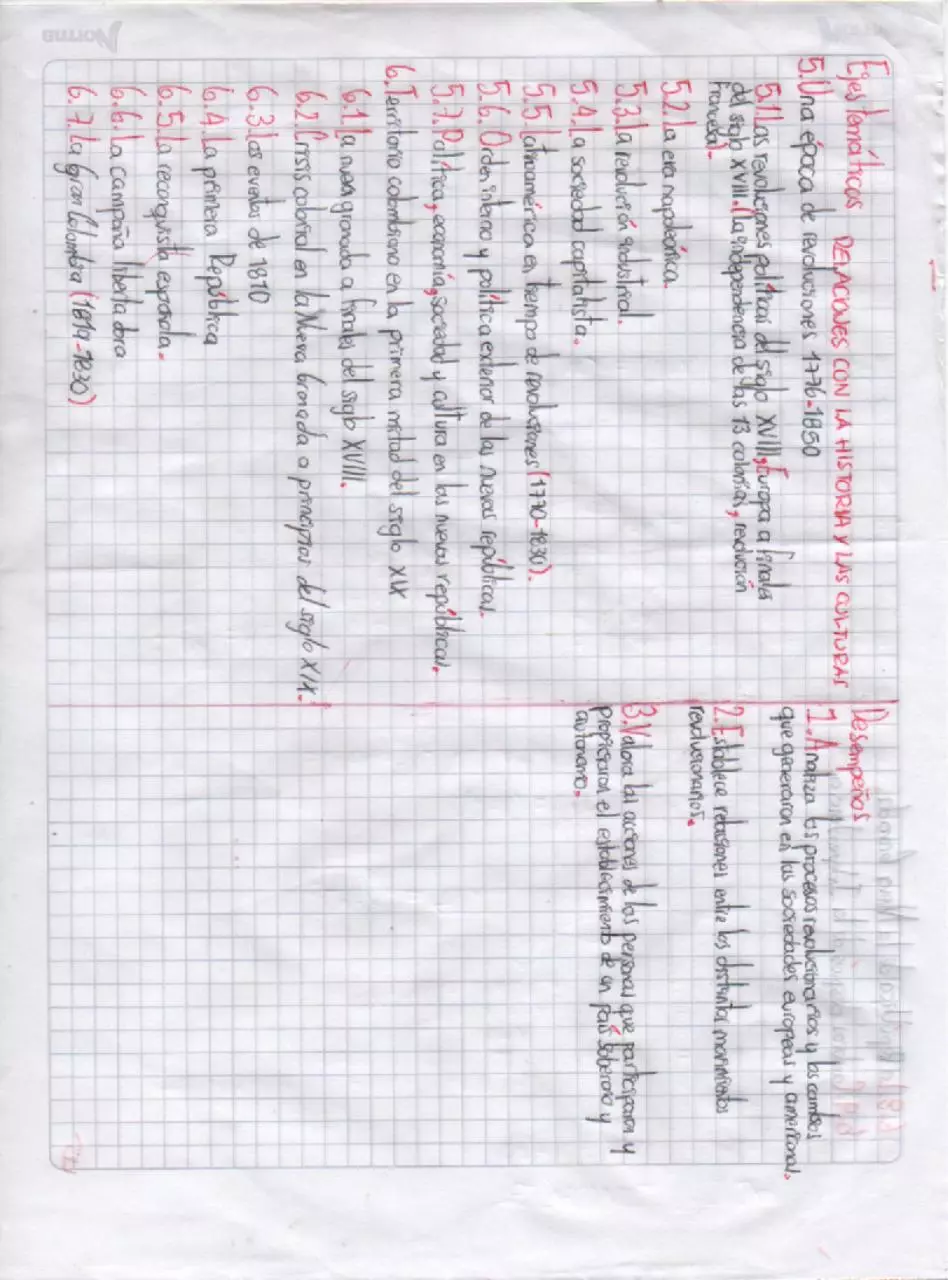 Ejes temáticos RELACIONES CON LA HISTORIA Y LAS CULTURAS
5. Una época de revoluciones 1776-1850
5.1 Las revoluciones políticas del siglo XVIII, Europa a finales
del siglo XVIII. (La independencia de las 13 colonias, revolución
Francesa).
5.2 La era napoleónica.
5.3 La revolución industrial.
5.4. La sociedad capitalista.
5.5 Latinoamérica en tiempo de revoluciones (1770-1830).
5.6. Orden interno y política exterior de las nuevas repúblicas.
5.7. Política, economía, sociedad y cultura en las nuevas repúblicas.
6. Territorio colombiano en la primera mitad del siglo XIX
6.1 La nueva granada a finales del siglo XVIII.
6.2. Crisis colonial en la Nueva Granada a principios del siglo XIX.
6.3 Los eventos de 1810
6.4. La primera República
6.5. La reconquista española.
6.6. La campaña libertadora
6.7. La gran Colombia (1819-1830)
Desempeños
1. Analiza los procesos revolucionarios y los cambios
que generaron en las sociedades europeas y americanas.
2. Establece relaciones entre los distintos movimientos
revolucionarios.
3. Valora las acciones de las personas que participaron y
propiciaron el establecimiento de un país soberano y
autónomo.
Norma